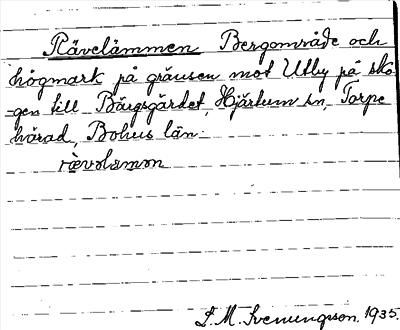 Rävelämmen Bergområde och
högmark på gränsen mot Utby på sko-
gen till Bärgsgärdet, Hjärtum sn, Torpe
härad, Bohus län.
rævəlæmən
L. M. Svenungsson. 1935.